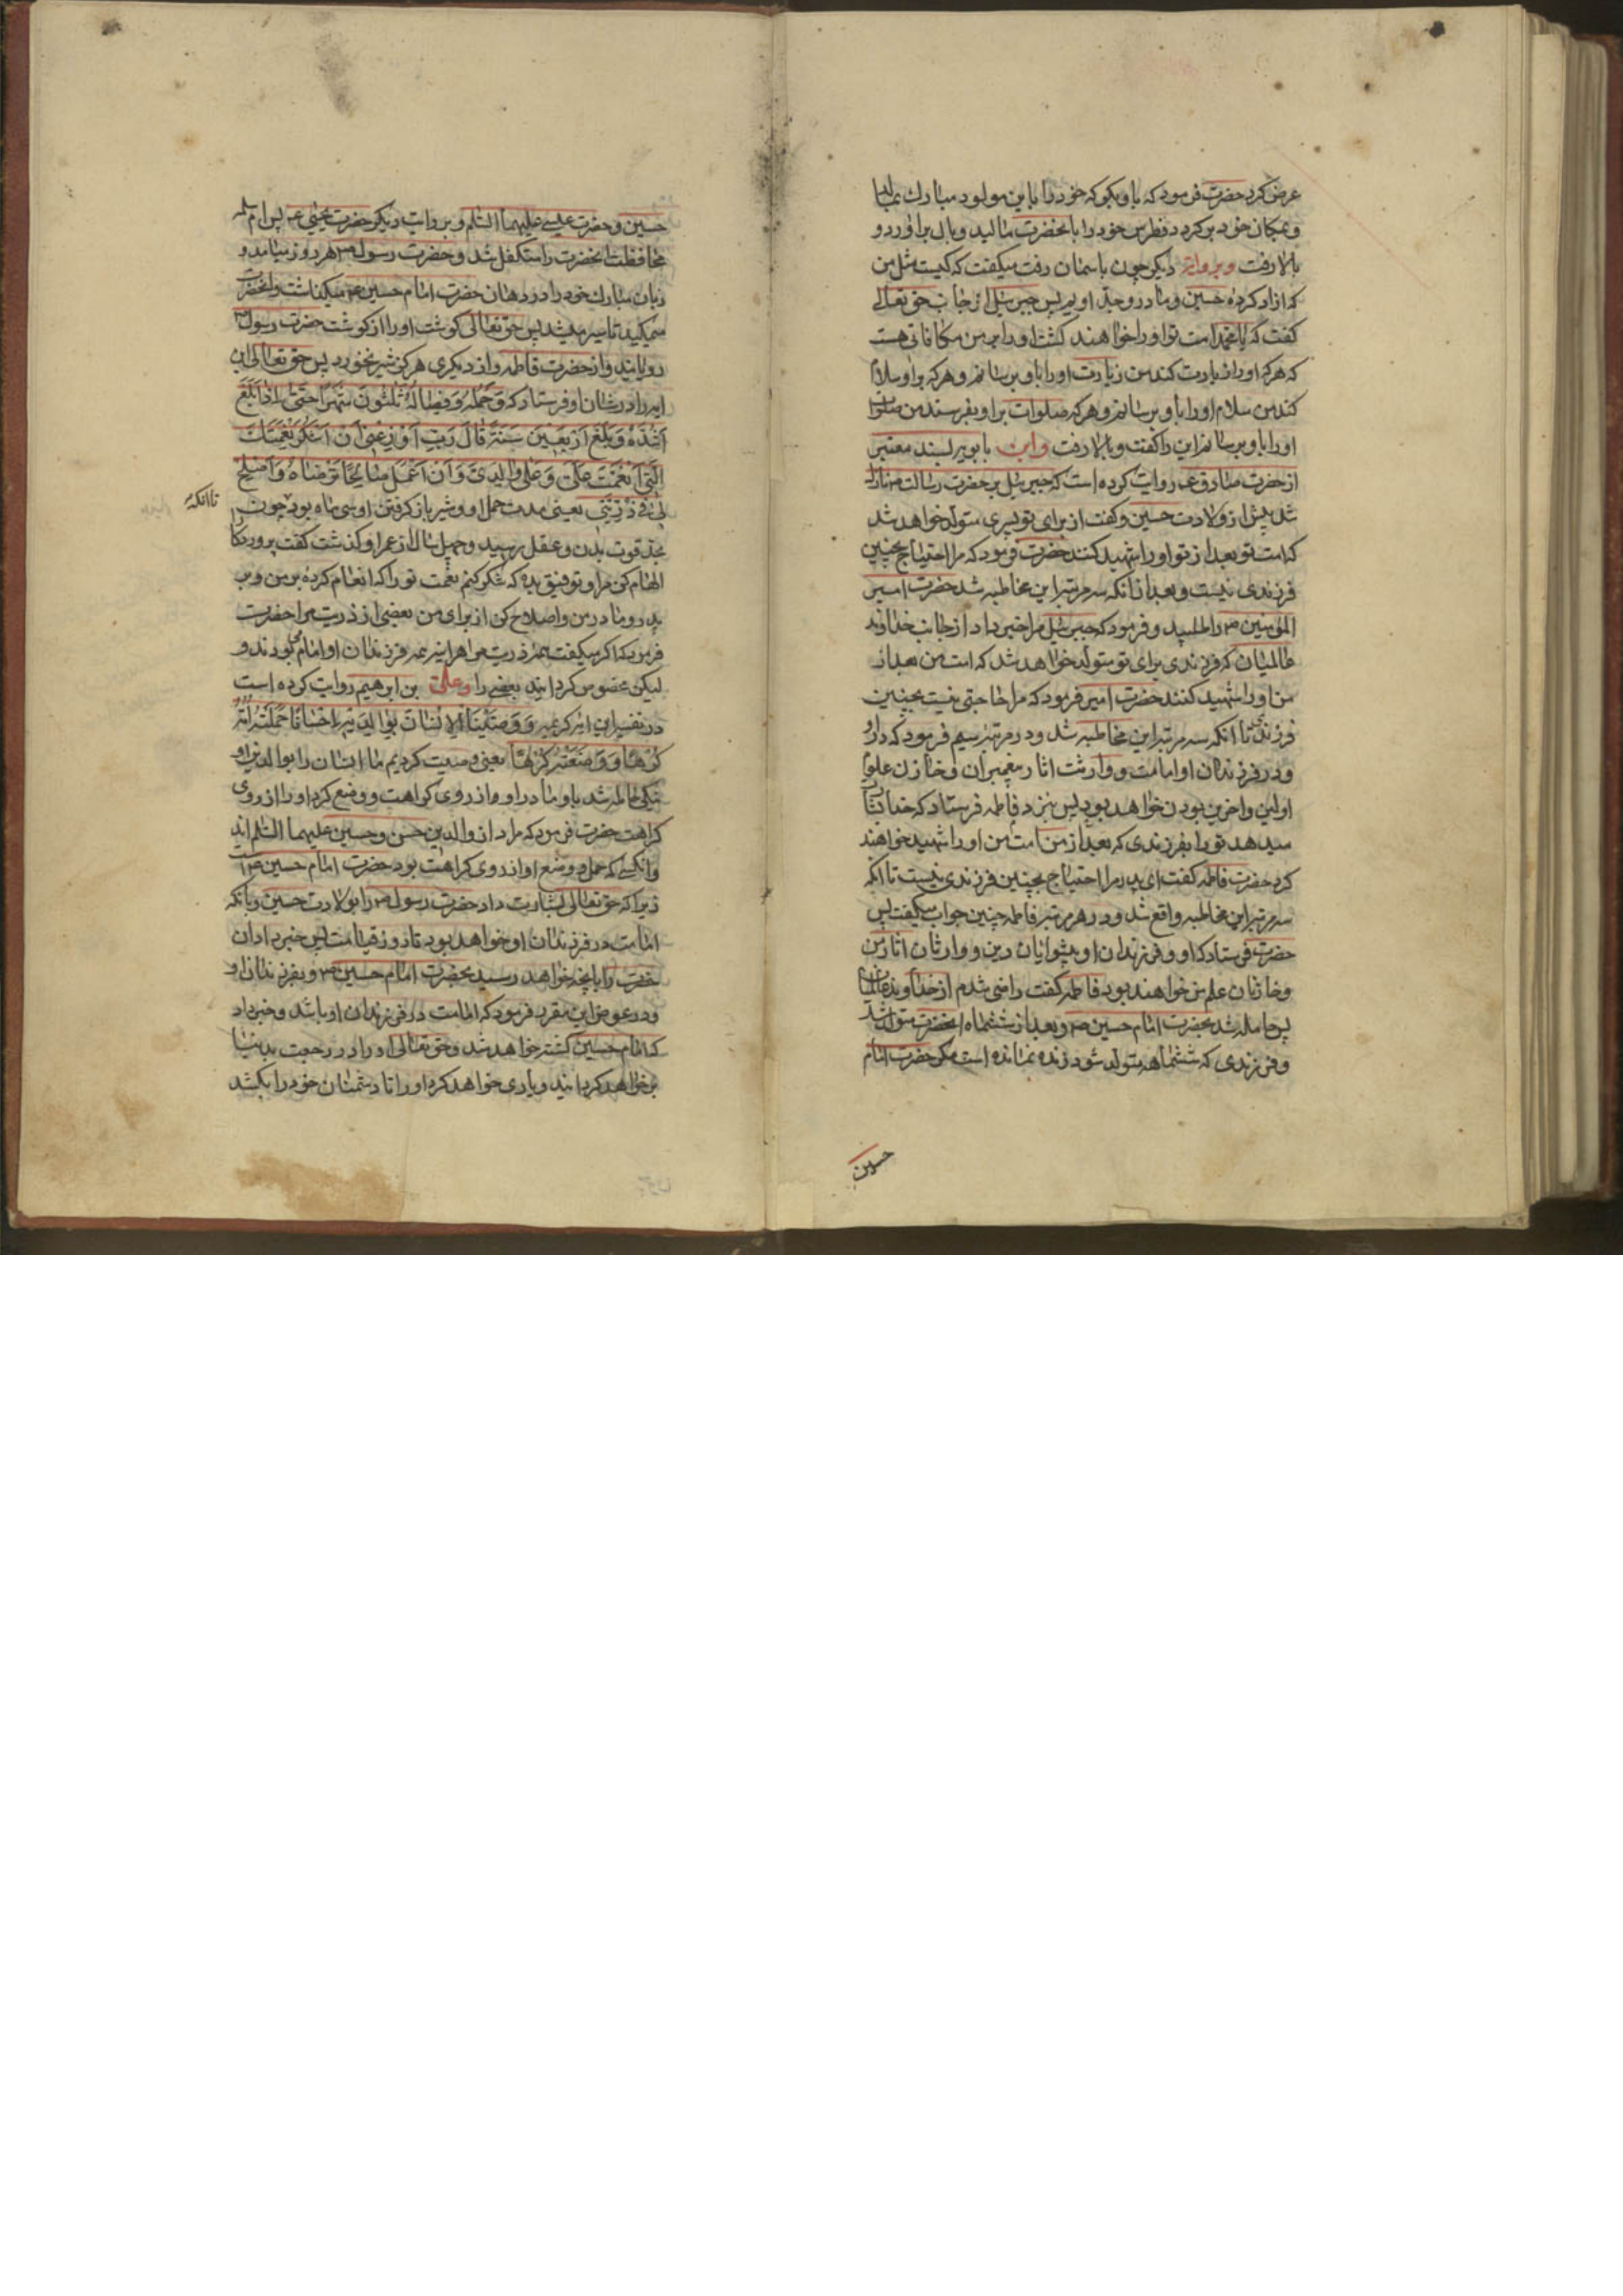 عرض کرد حضرت فرمود که باو بکو که خود را باین مولود مبارک بمالد
و بمکان خود برکردد فطرس خود را بانحضرت مالید و بال براورد و
بالا رفت و بروایت دیکر چون باسمان رفت میکفت که کیست مثل من
که ازاد کرده حسین و مادر و جد اویم پس جبرئیل از جانب حق تعالی
کفت که یا محمد امت تو او را خواهند کشت و او را بر من مکافاتی هست
که هرکه او را زیارت کند من زیارت او را باو برسانم و هرکه بر او سلام
کند من سلام او را باو برسانم و هرکه صلوات بر او بفرستد من صلوات
او را باو برسانم این را کفت و بالا رفت و ابن بابویه بسند معتبر
از حضرت صادق ع روایت کرده است که جبرئیل بر حضرت رسالت ص نازل
شد پیش از ولادت حسین و کفت از برای تو پسری متولد خواهد شد
که امت تو بعد از تو او را شهید کنند حضرت فرمود که مرا احتیاج بچنین
فرزندی نیست و بعد از انکه سه مرتبه این مخاطبه شد حضرت امیر
المؤمنین ص را طلبید و فرمود که جبرئیل مرا خبر داد از جانب خداوند
عالمیان که فرزندی برای تو متولد خواهد شد که امت من بعد از
من او را شهید کنند حضرت امیر فرمود که مرا حاجتی نیست بچنین
فرزندی تا انکه سه مرتبه این مخاطبه شد و در مرتبه سیم فرمود که در او
و در فرزندان او امامت و وارثت اثار پیغمبران و خازن علوم
اولین و اخرین بودن خواهد بود پس بنزد فاطمه فرستاد که خدا بشارت
میدهد تو را بفرزندی که بعد از من امت من او را شهید خواهند
کرد حضرت فاطمه کفت ای پدر مرا احتیاج بچنین فرزندی نیست تا انکه
سه مرتبه این مخاطبه واقع شد و در هر مرتبه فاطمه چنین جواب میکفت پس
حضرت فرستاد که او و فرزندان او پیشوایان دین و وارثان اثار من
و خازنان علم من خواهند بود فاطمه کفت راضی شدم از خداوند عالمیان
پس حامله شد بحضرت امام حسین ص و بعد از ششماه انحضرت متولد شد
و فرزندی که ششماهه متولد شود زنده نمانده است مکر حضرت امام
حسین
حسین و حضرت عیسی علیهما السلم و بروایت دیکر حضرت یحیی ع پس ام سلمه
محافظت انحضرت را متکفل شد و حضرت رسول ص هر روز میامد و
زبان مبارک خود را در دهان حضرت امام حسین ع میکذاشت و انحضرت
میمکید تا سیر میشد پس حق تعالی کوشت او را از کوشت حضرت رسول ص
رویانید و از حضرت فاطمه و از دیکری هرکز شیر نخورد پس حق تعالی این
ایه را در شان او فرستاد که وَحَمْلُهُ وَفِصَالُهُ ثَلٰثُونَ شَهْرًا حَتّٰى اِذَا بَلَغَ
اَشُدَّهُ وَبَلَغَ اَرْبَعِینَ سَنَةً قَالَ رَبِّ اَوْزِعْنِی اَنْ اَشْکُرَ نِعْمَتَکَ
الَّتِی اَنْعَمْتَ عَلَیَّ وَعَلٰی وَالِدَیَّ وَاَنْ اَعْمَلَ صَالِحًا تَرْضَاهُ وَاَصْلِحْ
لِی فِی ذُرِّیَّتِی یعنی مدت حمل او و شیر باز کرفتن او سی ماه بود چون
تا انکه
بحد قوت بدن و عقل رسید و چهل سال از عمر او کذشت کفت پروردکارا
الهام کن مرا و توفیق بده که شکر کنم نعمت تو را که انعام کرده بر من و بر
پدر و مادر من و اصلاح کن از برای من بعضی از ذریت مرا حضرت
فرمود که اکر میکفت همه ذریت مرا هراینه همه فرزندان او امام می بودند و
لیکن مخصوص کردانید بعضی را و علی بن ابرهیم روایت کرده است
در تفسیر این ایه کریمه وَوَصَّیْنَا الْاِنْسَانَ بِوَالِدَیْهِ اِحْسَانًا حَمَلَتْهُ اُمُّهُ
کُرْهًا وَوَضَعَتْهُ کُرْهًا یعنی وصیت کردیم ما انسان را بوالدین او
نیکی حامله شد باو مادر او از روی کراهت و وضع کرد او را از روی
کراهت حضرت فرمود که مراد از والدین حسن و حسین علیهما السلم اند
و انکسی که حمل و وضع او از روی کراهت بود حضرت امام حسین ع است
زیرا که حق تعالی بشارت داد حضرت رسول ص را بولادت حسین و بانکه
امامت در فرزندان او خواهد بود تا روز قیامت پس خبر داد ان
حضرت را بانچه خواهد رسید بحضرت امام حسین ص و بفرزندان او
و در عوض این مقرر فرمود که امامت در فرزندان او باشد و خبر داد
که امام حسین کشته خواهد شد و حق تعالی او را در رجعت بدنیا
بر خواهد کردانید و یاری خواهد کرد او را تا دشمنان خود را بکشد